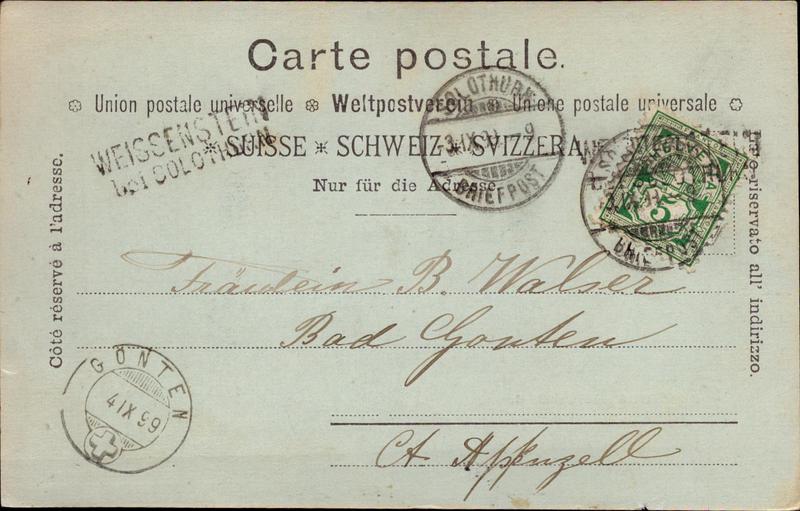 Carte postale.
Union postale universelle Weltpostverein Unione postale universale
WEISSENSTEIN
bei SOLOTHURN
SUISSE * SCHWEIZ * SVIZZERA
Nur für die Adresse.
SOLOTHURN
3.IX.99
BRIEFPOST
HELVETIA
5
BRIEFPOST
Côté réservé à l'adresse.
Lato riservato all' indirizzo.
Fräulein B. Walser
Bad Gonten
Ct. Appenzell
GONTEN
4 IX 99